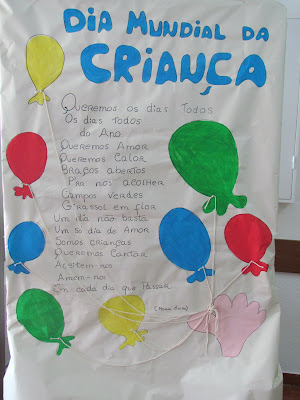 DIA MUNDIAL DA
CRIANÇA
Queremos os dias todos
Os dias todos
do Ano
Queremos Amor
Queremos Calor
Braços abertos
P'ra nos acolher
Campos verdes
Girassol em flor
Um dia não basta
Um só dia de Amor
Somos crianças
Queremos Cantar
Aceitem-nos
Amem-nos
Em cada dia que Passar